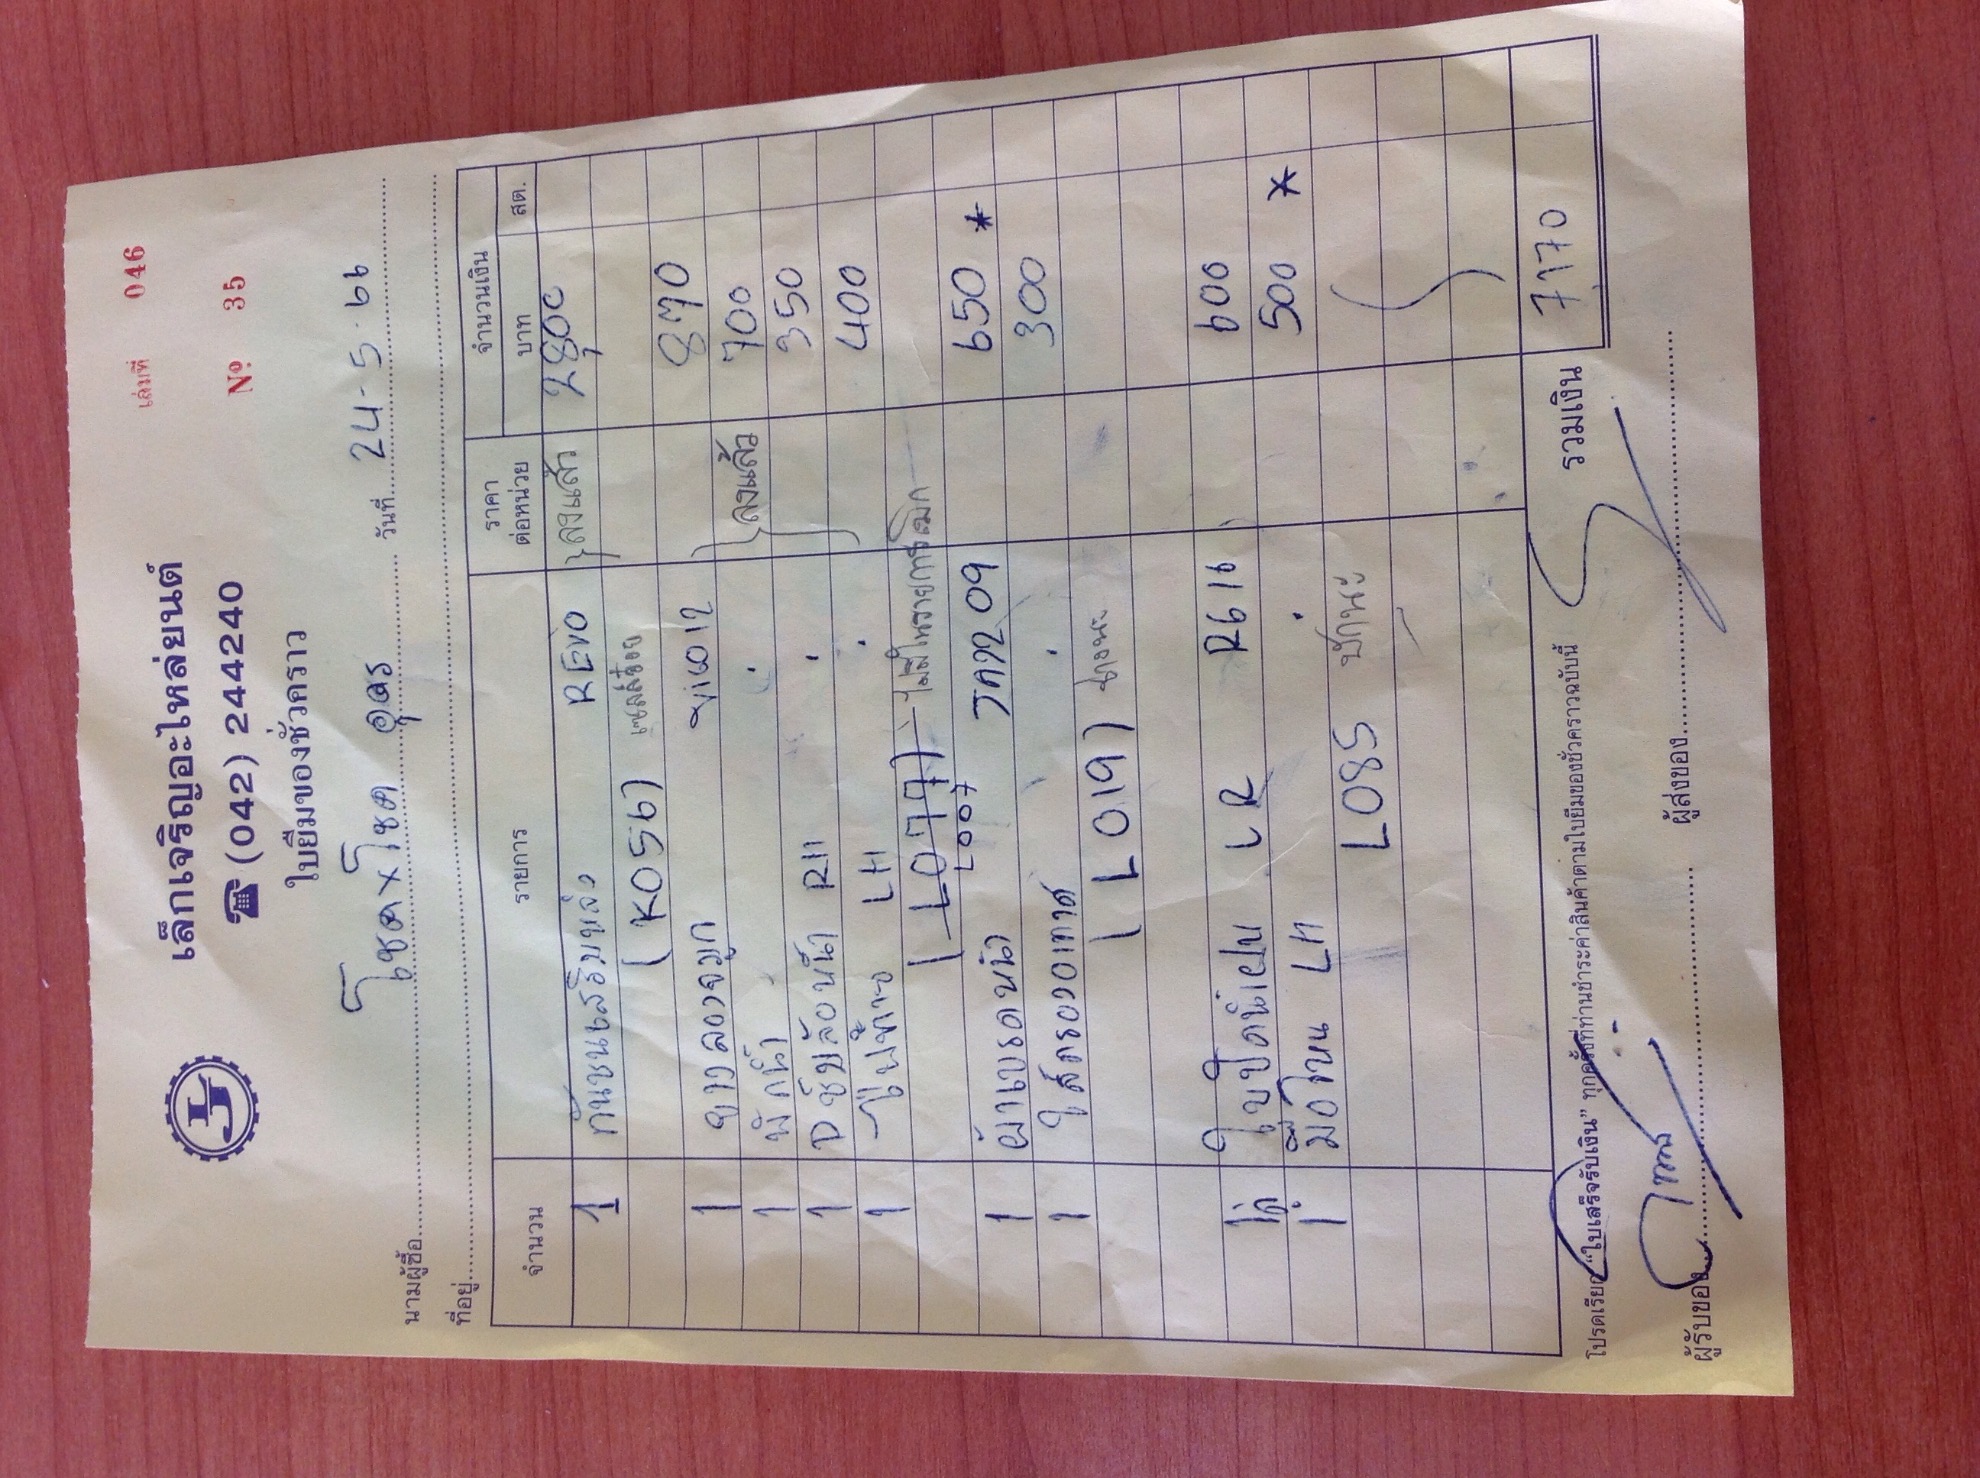 เล่มที่ 046
เล็กเจริญอะไหล่ยนต์
☎ (042) 244240
Nº 35
ใบยืมของชั่วคราว
นามผู้ซื้อ โชคxโชค อุดร วันที่ 24-5-66
ที่อยู่
จำนวน รายการ ราคาต่อหน่วย จำนวนเงิน
บาท สต.
1 กันชนเสริมหล่อ REVO ลงแล้ว 2800
(K056)
1 ยางลองจมูก VIGO 12 870
1 ลงแล้ว 700
1 RH 350
1 LH 400
(L077) - ไม่มีในรายการเบิก
L007
1 ผ้าเบรคหน้า 09 650 *
1 ใส้กรองอากาศ 300
(L019)
LR 600
1 LH 500 *
L085
รวมเงิน 7170
โปรดเรียก “ใบเสร็จรับเงิน” ทุกครั้งที่ท่านชำระค่าสินค้าตามใบยืมของชั่วคราวฉบับนี้
ผู้รับของ ผู้ส่งของ